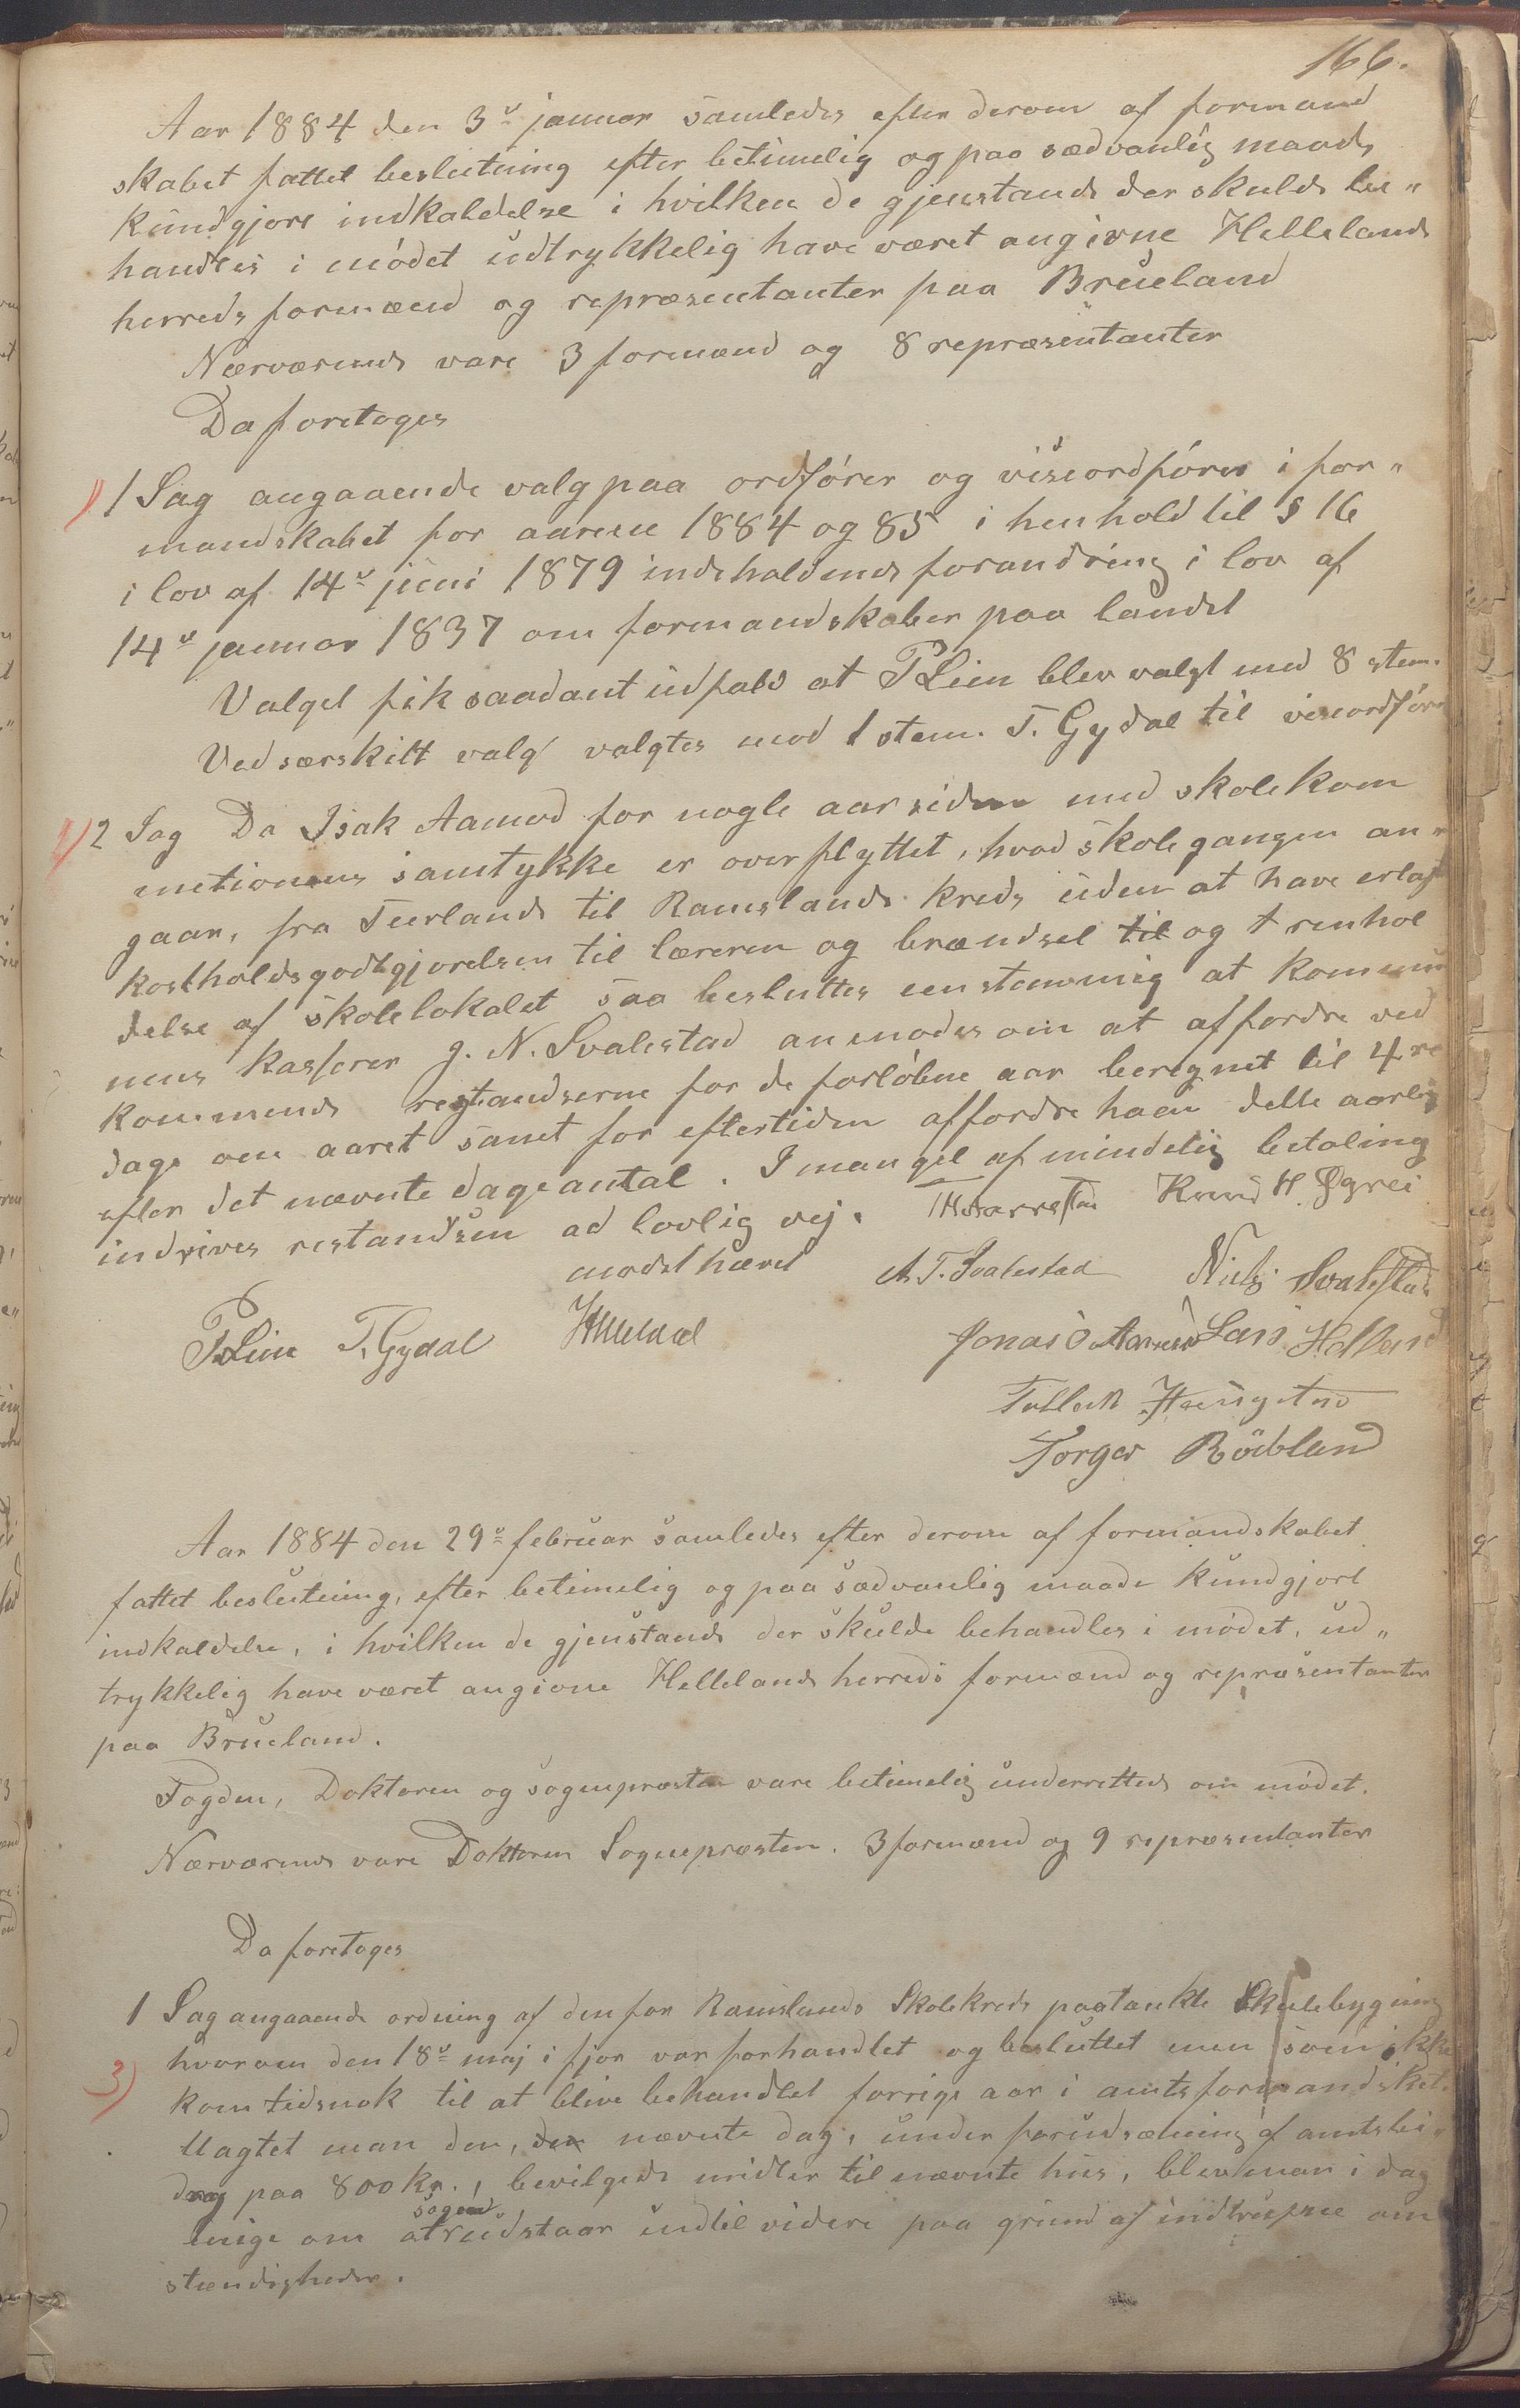 166.
Aar 1884 den 3die januar samledes efter derom af formand
skabet fattet beslutning efter betimelig og paa sædvanlig maade
kundgjort indkaldelse i hvilken de gjenstande der skulde be„
handles i mödet udtrykkelig have været angivne Hellelands
herreds formænd og repræsentanter paa Brueland
Nærværende vare 3 formænd og 8 repræsentanter
Da foretoges
1) 1 Sag angaaende valg paa ordförer og viseordförer i for„
mandskabet for aarene 1884 og 85 i henhold til § 16
i lov af 14de juni 1879 indeholdende forandring i lov af
14de januar 1837 om formandskaber paa landet
Valget fik saadant udfald at P Lien blev valgt med 8 stem.
Ved særskilt valg valgtes med 1 stem. T. Gydal til viseordförer
2) 2 Sag Da Isak Aamod for nogle aar siden med skolekom
metionens samtykke er overflyttet, hvad skolegangen an„
gaar, fra Tuerlands til Ramslands kreds uden at have erlagt
kostholdsgodtgjorelsen til læreren og brændsel til og t renhol
delse af skolelokalet saa besluttes eenstemmig at kommu
nens kasserer J. N. Svalestad anmodes om at affordre ved
kommende restandserne for de forlöbne aar beregnet til 4re
dage om aaret samt for eftertiden affordre ham dette aarlig
efter det nævnte dageantal. I mangel af mindelig betaling
indrives restandsen ad lovlig vej.
Knud H. Øgrei
mødet hævet
A. T. Svalestad Niels Svalestad
P Lien T. Gydal
Jonas Lars Helland
Tolleik
Torger Röibland
Aar 1884 den 29de februar samledes efter derom af formandskabet
fattet beslutning, efter betimelig og paa sædvanlig maade kundgjort
indkaldelse, i hvilken de gjenstande der skulde behandles i mödet, ud„
trykkelig have været angivne Hellelands herreds formænd og repræsentanter
paa Brueland.
Fogden, Doktoren og sognepræsten vare betimelig underrettede om mödet.
Nærværende vare Doktoren Sognepræsten. 3 formænd og 9 repræsentanter
Da foretoges
1 Sag angaaende ordning af den for Ramslands Skolekreds paatænkte Skolebygning
hvorom den 18de maj i fjor var forhandlet og besluttet men som ikke
3) kom tidsnok til at blive behandlet forrige aar i amtsformandsket.
Uagtet man den, den nævnte dag, under forudsætning af amtsbi„
drag paa 800 kr., bevilgede midler til nævnte hus, blev man i dag
sagen
enige om at udstaar indtil videre paa grund af indtrufne om
stændigheder.